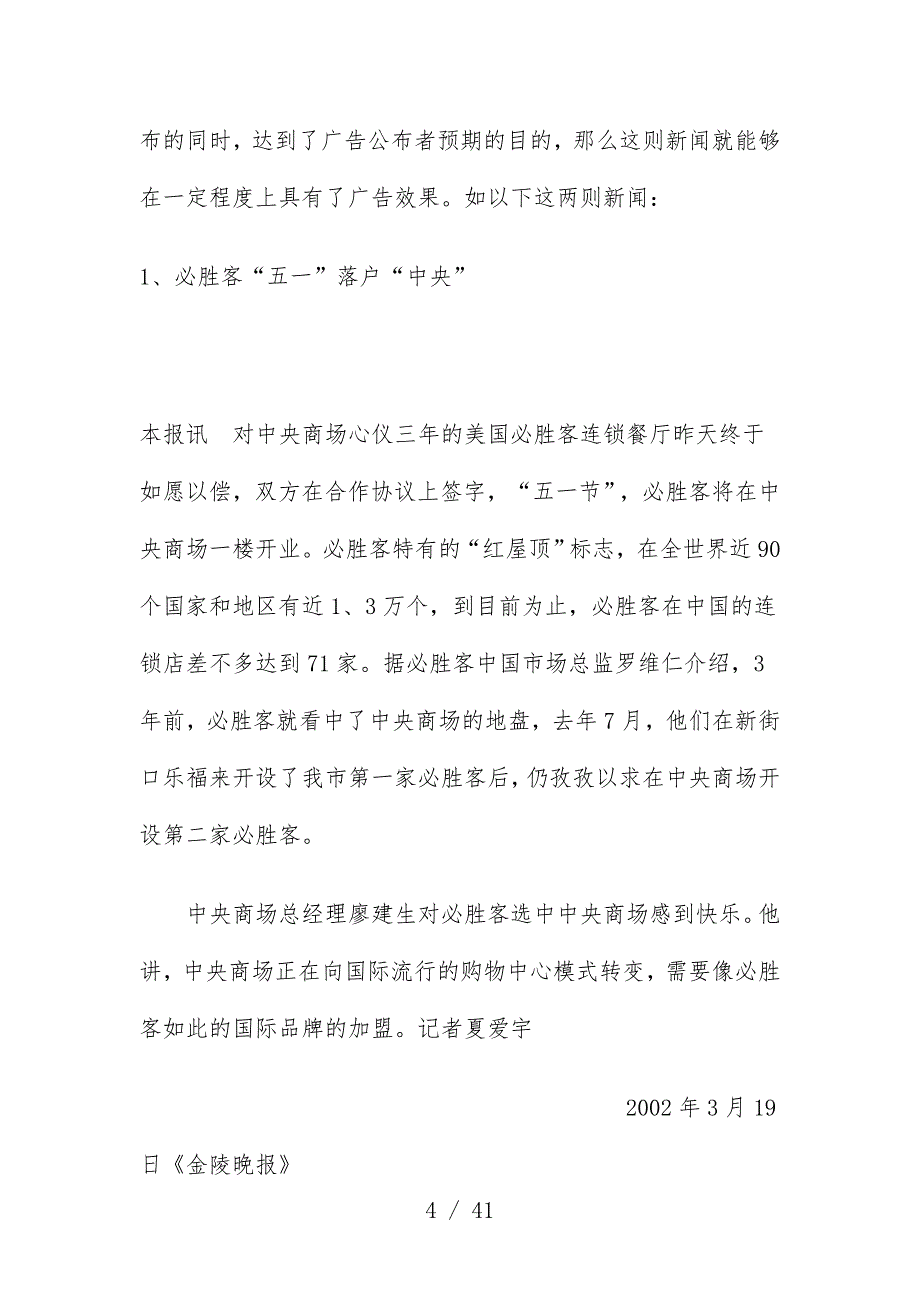 布的同时，达到了广告公布者预期的目的，那么这则新闻就能够
在一定程度上具有了广告效果。如以下这两则新闻：
1、必胜客“五一”落户“中央”
本报讯　对中央商场心仪三年的美国必胜客连锁餐厅昨天终于
如愿以偿，双方在合作协议上签字，“五一节”，必胜客将在中
央商场一楼开业。必胜客特有的“红屋顶”标志，在全世界近 90
个国家和地区有近 1、3 万个，到目前为止，必胜客在中国的连
锁店差不多达到 71 家。据必胜客中国市场总监罗维仁介绍，3
年前，必胜客就看中了中央商场的地盘，去年 7 月，他们在新街
口乐福来开设了我市第一家必胜客后，仍孜孜以求在中央商场开
设第二家必胜客。
中央商场总经理廖建生对必胜客选中中央商场感到快乐。他
讲，中央商场正在向国际流行的购物中心模式转变，需要像必胜
客如此的国际品牌的加盟。记者夏爱宇
2002 年 3 月 19
日《金陵晚报》
4 / 41